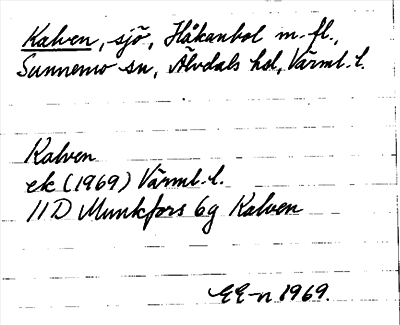 Kalven, sjö, Håkanbol m. fl.,
Sunnemo sn, Älvdals hd, Värml. l.
Kalven
ek (1969) Värml. l.
11D Munkfors 6g Kalven
EE-n 1969.